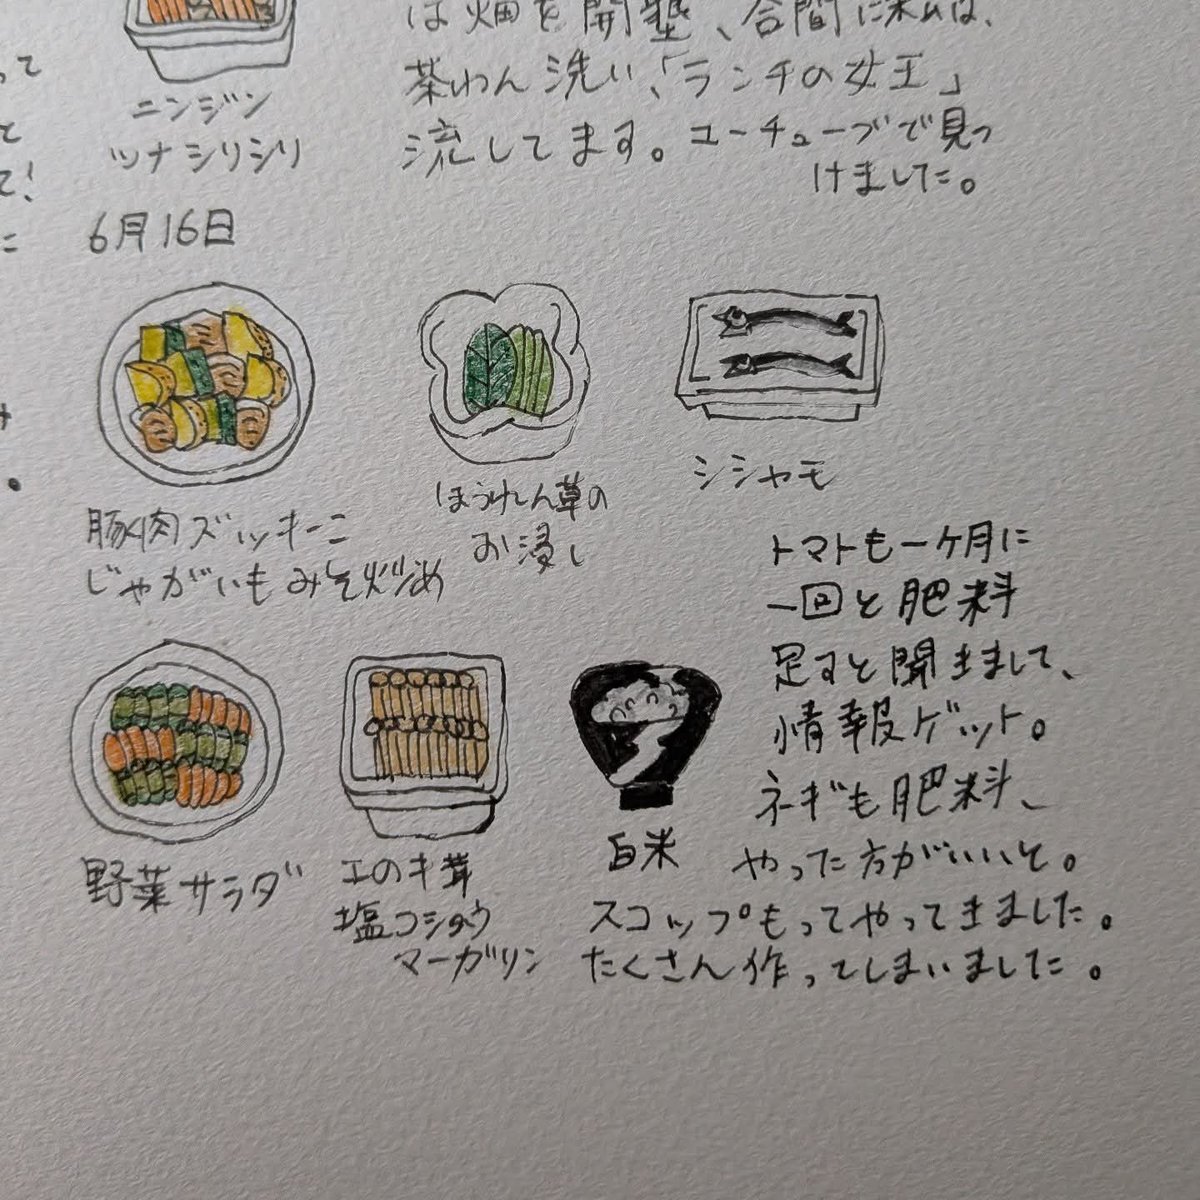 ニンジン
ツナシリシリ
は畑を開墾、合間に私は、
茶わん洗い、「ランチの女王」
流してます。ユーチューブで見つ
けました。
って
と
て!
に
6月16日
豚肉ズッキーニ
じゃがいもみそ炒め
ほうれん草の
お浸し
シシャモ
野菜サラダ
エのキ茸
塩コショウ
マーガリン
白米
トマトも一ケ月に
一回と肥料
足すと聞きまして、
情報ゲット。
ネギも肥料、
やった方がいいと。
スコップもってやってきました。
たくさん作ってしまいました。